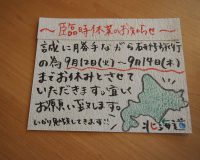 ～臨時休業のお知らせ～
誠に勝手ながら研修旅行
の為9月12日(火)～9月14日(木)
までお休みとさせて
いただきます。宜しく
お願い致します。
北海道